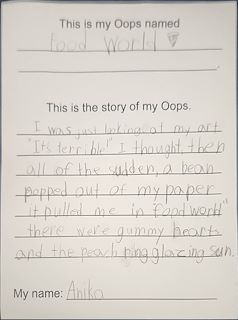 This is my Oops named
Food World
This is the story of my Oops.
I was just looking at my art
"It's terrible!" I thought, then
all of the sudden, a bean
popped out of my paper
it pulled me in food world"
there were gummy bears
and the peach ping glazing sun.
My name: Anika